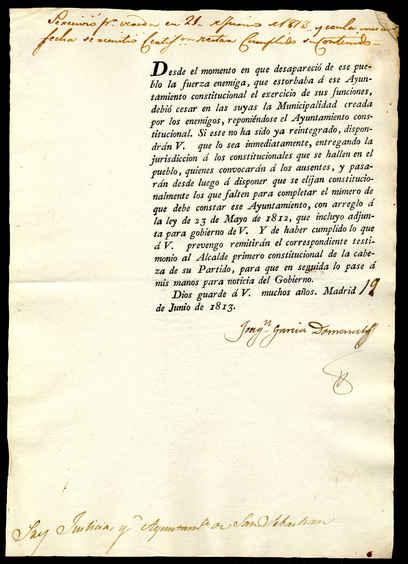 en 21 de Junio de 1813. y con la misma
fecha se remitio Certif.on
Desde el momento en que desapareció de ese pue-
blo la fuerza enemiga, que estorbaba á ese Ayun-
tamiento constitucional el exercicio de sus funciones,
debió cesar en las suyas la Municipalidad creada
por los enemigos, reponiéndose el Ayuntamiento con-
stitucional. Si este no ha sido ya reintegrado, dispon-
drán V. que lo sea inmediatamente, entregando la
jurisdiccion á los constitucionales que se hallen en el
pueblo, quienes convocarán á los ausentes, y pasa-
rán desde luego á disponer que se elijan constitucio-
nalmente los que falten para completar el número de
que debe constar ese Ayuntamiento, con arreglo á
la ley de 23 de Mayo de 1812, que incluyo adjun-
ta para gobierno de V. Y de haber cumplido lo que
á V. prevengo remitirán el correspondiente testi-
monio al Alcalde primero constitucional de la cabe-
za de su Partido, para que en seguida lo pase á
mis manos para noticia del Gobierno.
Dios guarde á V. muchos años. Madrid 19
de Junio de 1813.
Joaq.n Garcia Domenech
Justicia y Ayuntam.to de San Sebastian